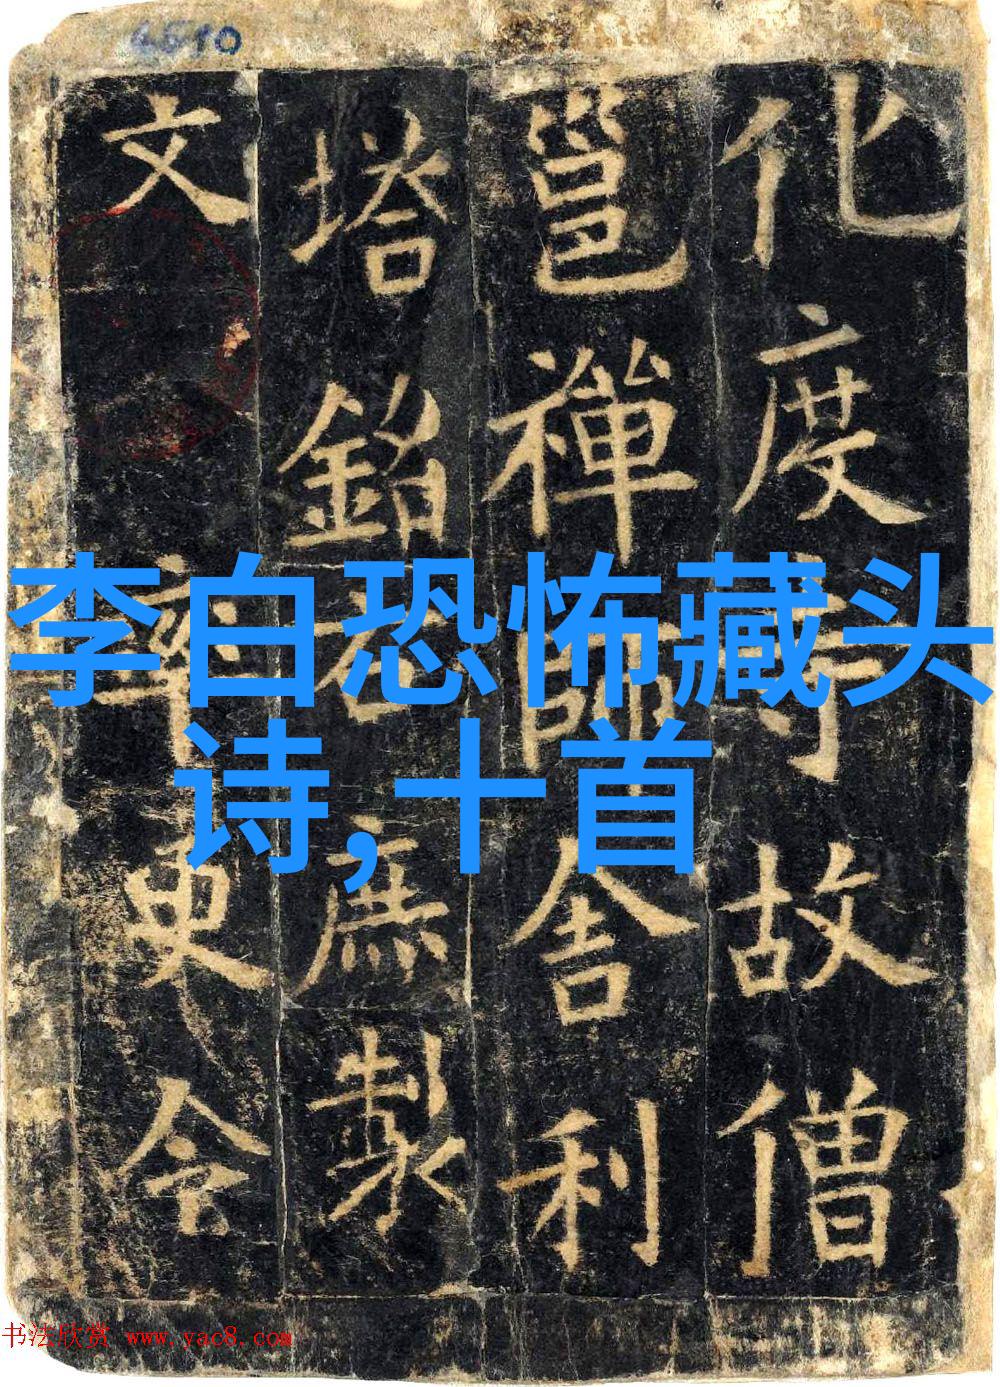 6510
化度寺故僧
邕禪師舍利
塔銘 右庶製
文 率更令
李白恐怖藏头
诗,十首
书法欣赏 www.yac8.com